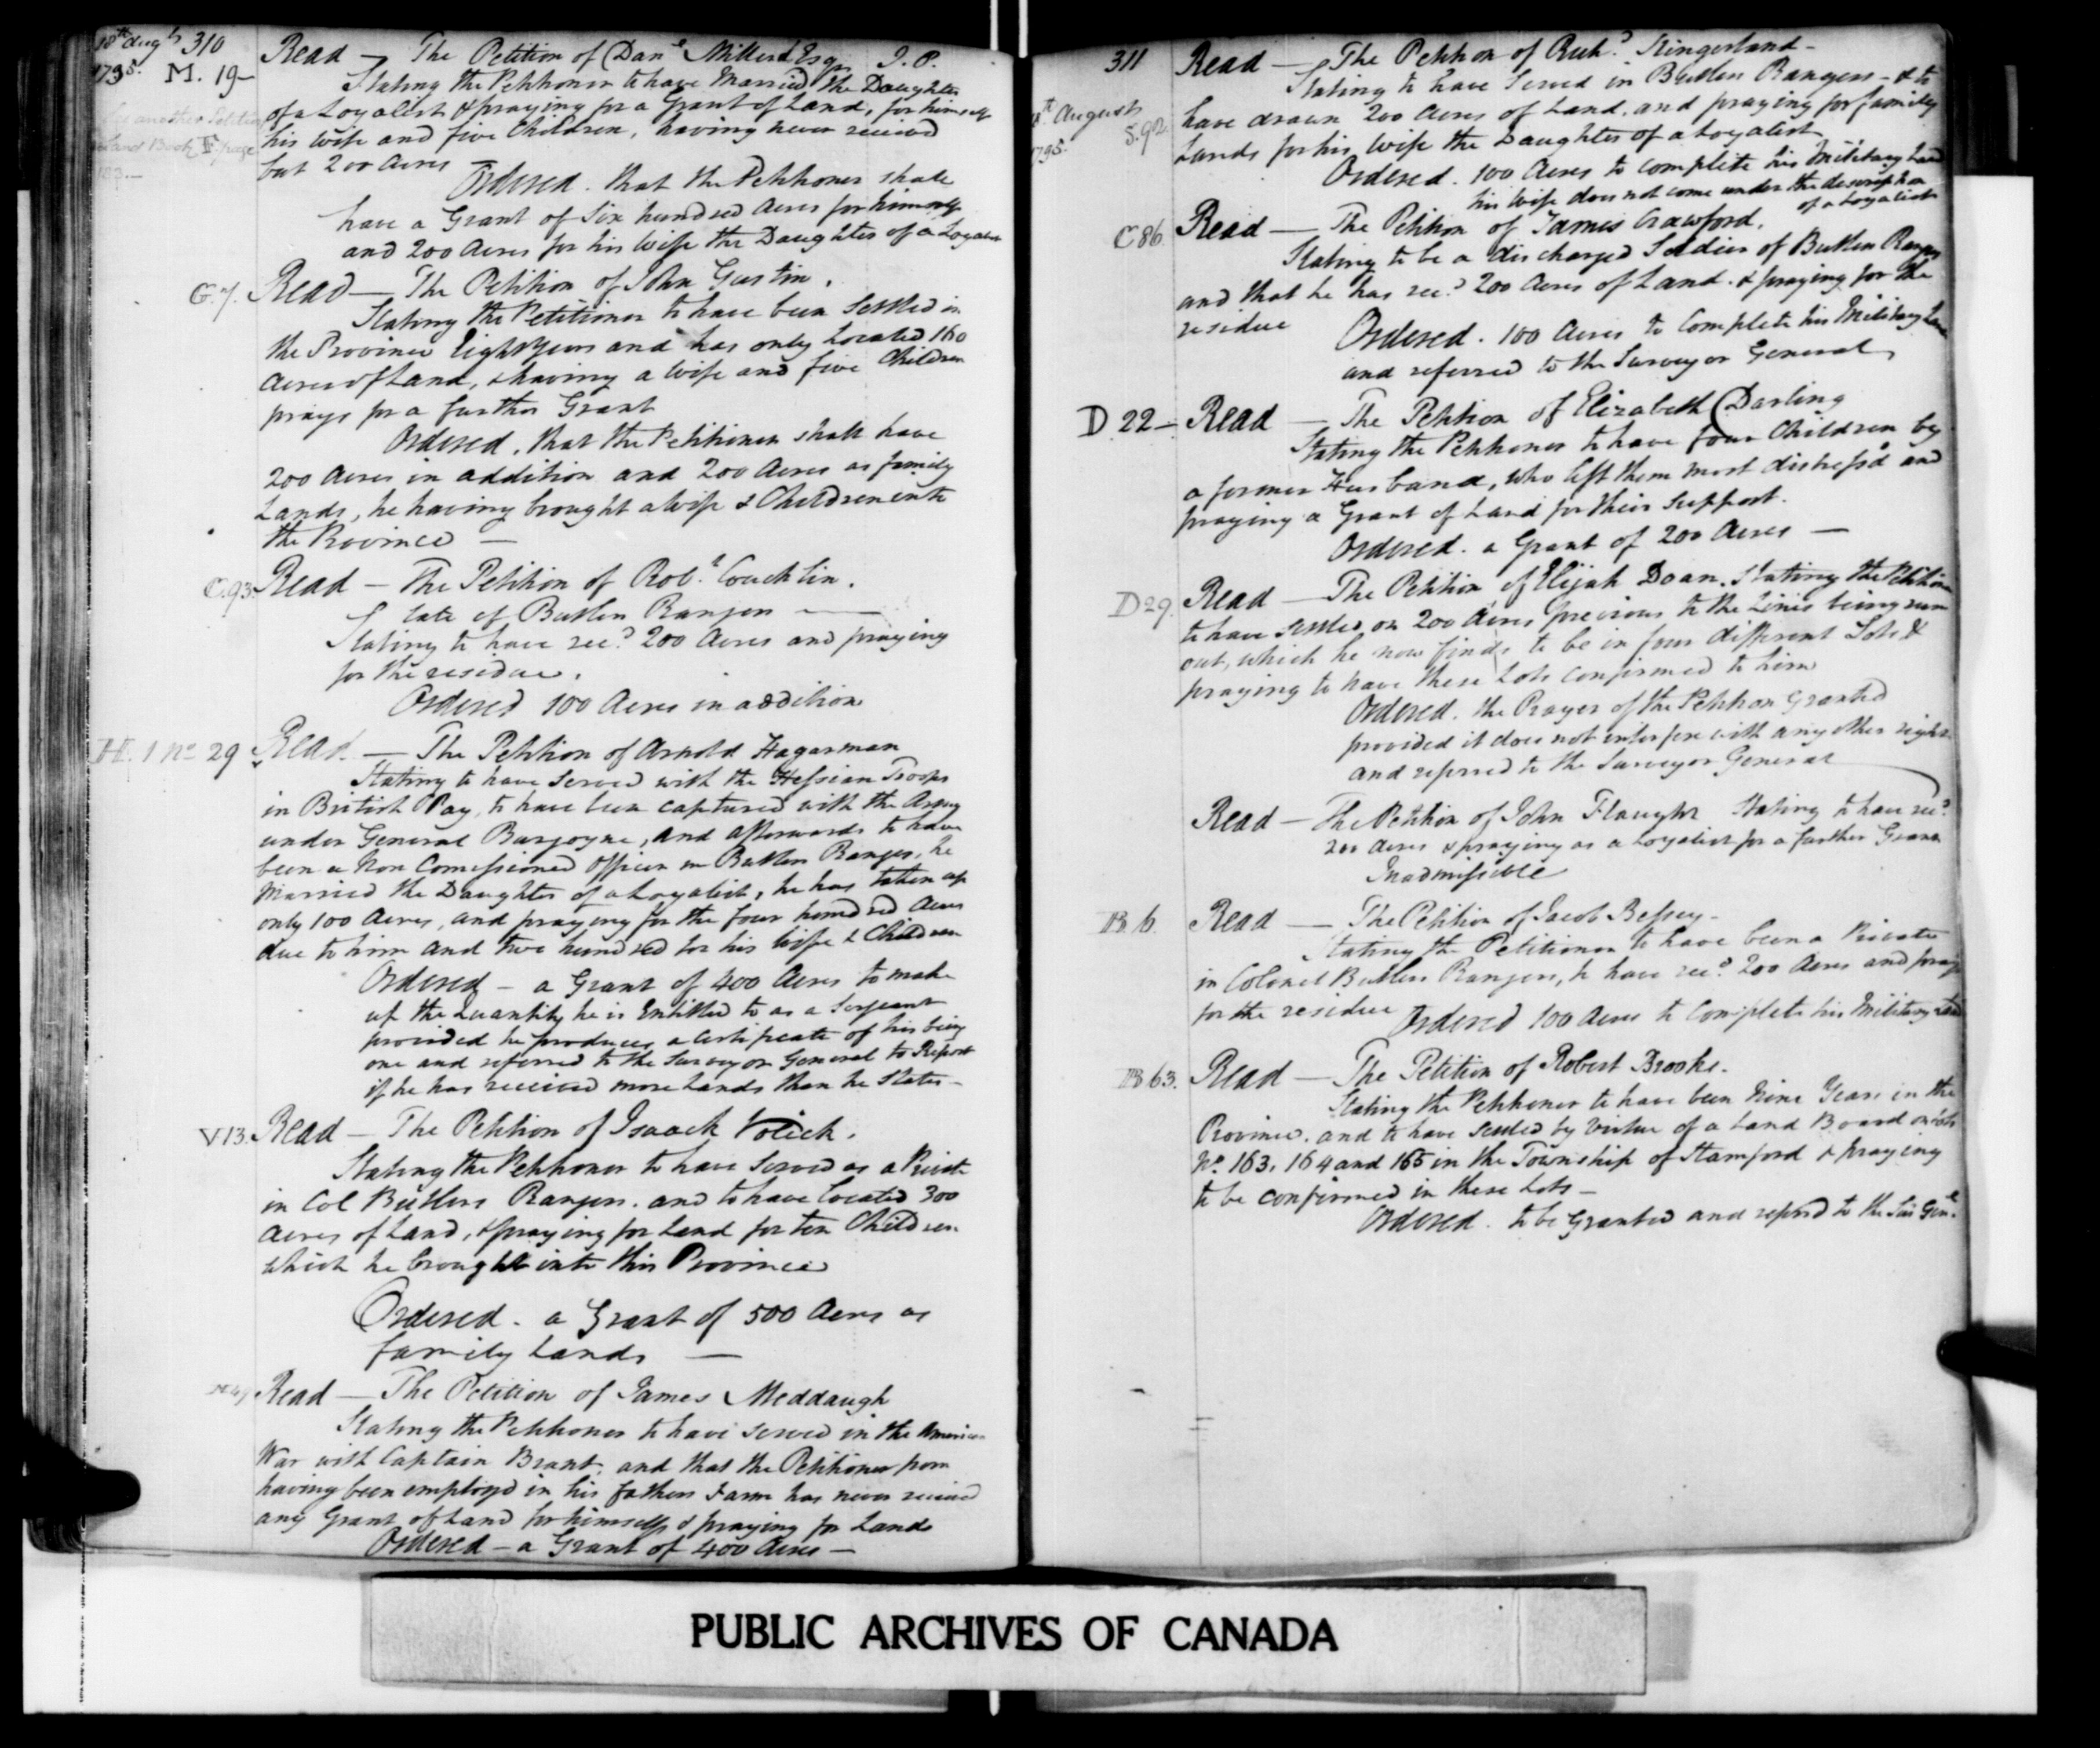 18th Augt 310
1795. M. 19-
Read - The Petition of Danl Millerd Esqr J.P.
Stating the Petitioner to have Married the Daughter
of a Loyalist & praying for a Grant of Land, for himself
his Wife and five Children, having never received
but 200 Acres
See another Petition
Land Book F. page
Ordered. that the Petitioner shall
have a Grant of Six hundred Acres for himself
and 200 Acres for his Wife the Daughter of a Loyalist
G. 7. Read - The Petition of John Gustin.
Stating the Petitioner to have been Settled in
the Province Eight Years and has only Located 160
Acres of Land, & having a Wife and five Children
prays for a further Grant
Ordered, that the Petitioner shall have
200 Acres in addition and 200 Acres as family
Lands, he having brought a Wife & Children into
the Province -
C. 93. Read - The Petition of Robt Coughlin.
late of Butlers Rangers -
Stating to have recd 200 Acres and praying
for the residue.
Ordered 100 Acres in addition
H. 1 No 29 Read. - The Petition of Arnold Hagarman
Stating to have served with the Hessian Troops
in British Pay, to have been captured with the Army
under General Burgoyne, and afterwards to have
been a Non Comissioned Officer in Butlers Rangers, he
Married the Daughter of a Loyalist, he has taken up
only 100 Acres, and praying for the four hundred Acres
due to him and two hundred for his Wife & Children
Ordered - a Grant of 400 Acres to make
up the Quantity he is Entitled to as a Serjeant
provided he produces a Certificate of his being
one and referred to the Surveyor General to Report
if he has received more Lands than he States -
V 13. Read - The Petition of Isaack Volick.
Stating the Petitioner to have Served as a Private
in Col Butlers Rangers. and to have located 300
Acres of Land, & praying for Land for ten Children
which he brought into this Province
Ordered - a Grant of 500 Acres as
family Lands -
M 47 Read - The Petition of James Meddaugh
Stating the Petitioner to have served in the American
War with Captain Brant, and that the Petitioner from
having been employd in his fathers Farm has never received
any Grant of Land for himself & praying for Lands
Ordered - a Grant of 400 Acres -
311 Read - The Petition of Richd Slingerland -
Stating to have Served in Butlers Rangers - & to
have drawn 200 Acres of Land. and praying for family
Lands for his Wife the Daughter of a Loyalist
August
S. 92.
1795.
Ordered. 100 Acres to complete his Military Land
his Wife does not come under the description
of a Loyalist
C 86. Read - The Petition of James Crawford.
Stating to be a discharged Soldier of Butlers Rangers
and that he has recd 200 Acres of Land. & praying for the
residue
Ordered. 100 Acres to Complete his Military Land
and referred to the Surveyor General
D. 22 - Read - The Petition of Elizabeth Darling
Stating the Petitioner to have four Children by
a former Husband, who left them most distress'd and
praying a Grant of Land for their Support.
Ordered. a Grant of 200 Acres -
D 29. Read - The Petition of Elijah Doan. Stating the Petitioner
to have settled on 200 Acres previous to the Lines being run
out, which he now finds to be in four different Lots &
praying to have these Lots confirmed to him
Ordered. the Prayer of the Petition Granted
provided it does not interfere with any other right
and referred to the Surveyor General
Read - The Petition of John Flaugher Stating to have recd
200 Acres & praying as a Loyalist for a further Grant
Inadmissible
B. 6. Read - The Petition of Jacob Bessey -
Stating the Petitioner to have been a Private
in Colonel Butlers Rangers, to have recd 200 Acres and prays
for the residue
Ordered 100 Acres to Complete his Military Land
B 63. Read - The Petition of Robert Brooke.
Stating the Petitioner to have been Nine Years in the
Province. and to have settled by Virtue of a Land Board on Lots
No. 163, 164 and 165 in the Township of Stamford & praying
to be confirmed in these Lots -
Ordered. to be Granted and referd to the Sur Genl.
PUBLIC ARCHIVES OF CANADA